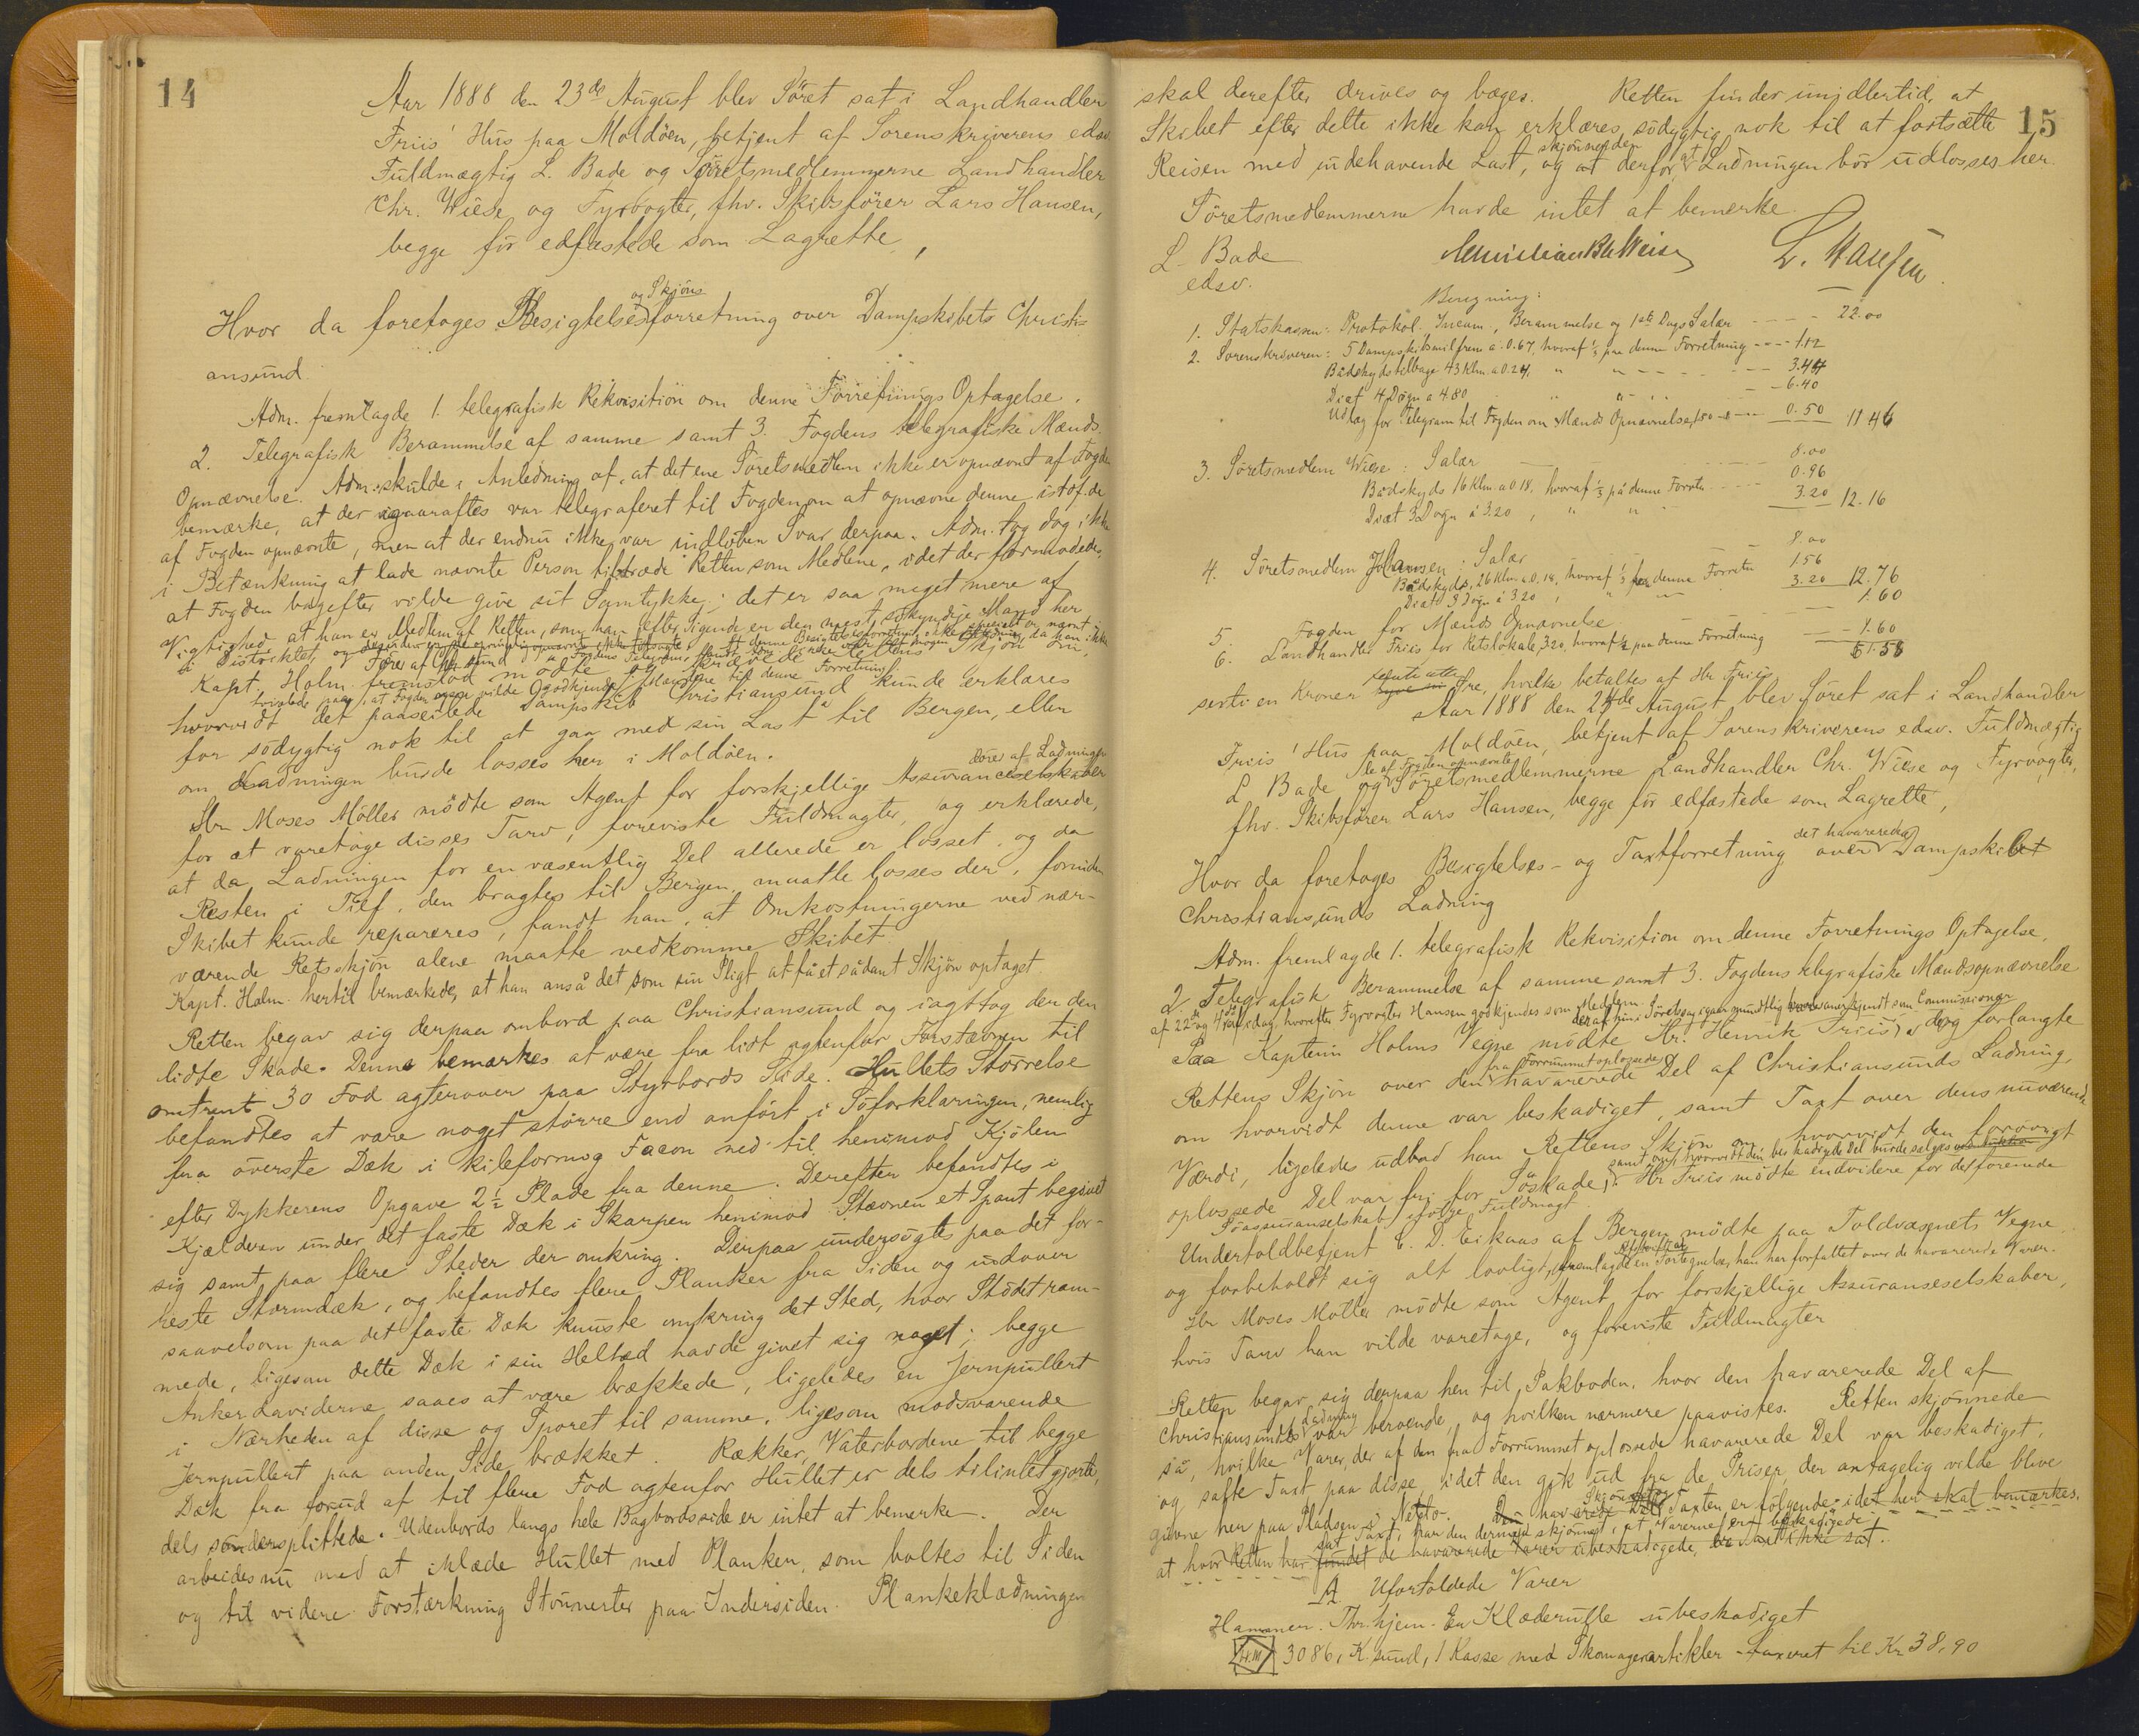 14
Aar 1888 den 23de August blev Söret sat i Landhandler
Friis' Hus paa Moldöen, betjent af Sorenskriverens edsv.
Fuldmægtig L. Bade og Söretsmedlemmerne Landhandler
Chr. Wiese og Fyrvogter, fhv. Skibsförer Lars Hansen,
begge för edfæstede som Lagrette,
og Skjöns
Hvor da foretoges Besigtelsesforretning over Dampskibets Christi-
ansund.
Adm. fremlagde 1. telegrafisk Rekvisition om denne Forretnings Optagelse.
2. Telegrafisk Berammelse af samme samt 3. Fogdens telegrafiske Mands-
Opnævnelse. Adm. skulde i Anledning af, at det ene Söretsmedlem ikke er opnævnt af Fogden
bemærke, at der igaaraftes var telegraferet til Fogden om at opnævne denne istdf. de
af Fogden opnævnte, men at der endnu ikke var indlöben Svar derpaa. Adm. tog dog ikke
i Betænkning at lade nævnte Person tiltræde Retten som Medlem, idet der formodedes,
at Fogden bagefter vilde give sit Samtykke; det er saa meget mere af
Vigtighed at han er Medlem af Retten, som han efter Sigende er den mest sökyndige Mand her
i Distriktet, og
Kapt. Holm, Förer af Chr.sund mödte krævede Rettens Skjön om,
hvorvidt det paaseilede Dampskib Christiansund kunde erklæres
for södygtig nok til at gaa med sin Last til Bergen, eller
om Ladningen burde losses her i Moldöen.
Hr. Moses Möller mödte som Agent for forskjellige Assuranceselskaber
for at varetage disses Tarv, foreviste Fuldmagter, og erklærede,
at da Ladningen for en væsentlig Del allerede er losset, og da
Resten i Tilf. den bragtes til Bergen, maatte losses der, forinden
Skibet kunde repareres, fandt han, at Omkostningerne ved nær-
værende Retsskjön alene maatte vedkomme Skibet.
Kapt. Holm hertil bemærkede, at han anså det som sin Pligt at få et sådant Skjön optaget.
Retten begav sig derpaa ombord paa Christiansund og iagttog den den
lidte Skade. Denne bemærkes at være fra lidt agtenfor Forstævnen til
omtrent 30 Fod agterover paa Styrbords Side. Hullets Störrelse
befandtes at være noget större end anfört i Söforklaringen, nemlig
fra överste Dæk i kileformig Facon ned til henimod Kjölen
efter Dykkerens Opgave 2½ Plade fra denne. Derefter befandtes i
Kjælderen under det faste Dæk i Skarpen henimod Stævnen et Spant begivet
sig samt paa flere Steder der omkring. Derpaa undersögtes paa det for-
reste Stormdæk, og befandtes flere Planker fra Siden og udover
saavelsom paa det faste Dæk knuste omkring det Sted, hvor Stödet ram-
mede, ligesom dette Dæk i sin Helhed havde givet sig noget; begge
Ankerdaviderne saaes at være brækkede, ligeledes en Jernpullert
i Nærheden af disse og Sporet til samme, ligesom modsvarende
Jernpullert paa anden Side brækket. Rækker, Vaterbordene til begge
Dæk fra forud af til flere Fod agtenfor Hullet er dels tilintetgjorte,
dels söndersplittede. Udenbords langs hele Bagbordsside er intet at bemerke. Der
arbeides nu med at iklæde Hullet med Planker, som boltes til Siden
og til videre Forstærkning Stöunerter paa Indersiden. Plankeklædningen
15
skal derefter drives og bæges. Retten finder imidlertid, at
Skibet efter dette ikke kan erklæres södygtig nok til at fortsætte
skjönnes den
Reisen med indehavende Last, og at derfor at Ladningen bör udlosses her.
Söretsmedlemmerne havde intet at bemerke.
L. Bade
edsv.
L. Hansen
Beregning:
1. Statskassen: Protokol. Incam., Berammelse og 1ste Dags Salær 22.00
2. Sorenskriveren: 5 Dampskibsmil frem a 0.67, hvoraf ⅓ paa denne Forretning 1.12
Bådskyds tilbage 43 Klm. a 0.24, " " 3.44
Diæt 4 Dögn a 4.80 " " 6.40
Udlæg for Telegram til Fogden om Mænds Opnævnelse 0.50 11 46
3. Söretsmedlem Wiese: Salær 8.00
Bådskyds 16 Klm a 0.18, hvoraf ⅓ på denne Forretn. 0.96
Diæt 3 Dögn á 3.20, " " 3.20 12.16
4. Söretsmedlem Hansen: Salær 8.00
Bådskyds, 26 Klm. a 0.18, hvoraf ⅓ paa denne Forretn 1.56
Diæt 3 Dögn á 3.20, " " 3.20 12.76
5. Fogden for Mænds Opnævnelse 1.60
6. Landhandler Friis for Retslokale, 3.20, hvoraf ½ paa denne Forretning 1.60
61.58
sexti en Kroner Öre, hvilke betaltes af Hr. Friis.
Aar 1888 den 24de August blev Söret sat i Landhandler
Friis' Hus paa Moldöen, betjent af Sorenskriverens edsv. Fuldmægtig
de af Fogden opnævnte
L Bade og Söretsmedlemmerne Landhandler Chr. Wiese og Fyrvogter,
fhv. Skibsförer Lars Hansen, begge för edfæstede som Lagrette,
det havarerede
Hvor da foretoges Besigtelses- og Taxtforretning over Dampskibet
Christiansunds Ladning
Adm. fremlagde 1. telegrafisk Rekvisition om denne Forretnings Optagelse,
2 Telegrafisk Berammelse af samme samt 3. Fogdens telegrafiske Mandsopnævnelse
af 22de og 4 af idag, hvorefter Fyrvogter Hansen godkjendes som Medlem.
Paa Kaptein Holms Vegne mödte Hr. Henrik Friis, der forlangte
fra Forrummet oplossede
Rettens Skjön over den havarerede Del af Christiansunds Ladning,
om hvorvidt denne var beskadiget, samt Taxt over dens nuværende
Værdi, ligeledes udbad han Rettens Skjön om, hvorvidt den forövrigt
oplossede Del var fri for Söskade, samt om hvorvidt den beskadigede Del burde selges. Hr Friis mödte endvidere for det forenede
Söassuranselskab ifölge Fuldmagt.
Undertoldbetjent C. D. Eikaas af Bergen mödte paa Toldvæsenets Vegne
og forbeholdt sig alt lovligt, fremlagde en Fortegnelse, han har forfattet over de havarerede Varer.
Hr. Moses Möller mödte som Agent for forskjellige Assuranseselskaber,
hvis Tarv han vilde varetage, og foreviste Fuldmagter
Retten begav sig derpaa hen til Pakboden, hvor den havarerede Del af
Christiansunds Ladning var beroende, og hvilken nærmere paavistes. Retten skjönnede
så, hvilke Varer, der af den fra Forrummet oplossede havarerede Del var beskadiget,
og satte Taxt paa disse, idet den gik ud fra de Priser, der antagelig vilde blive
givne her paa Pladsen i Netto. Taxten er fölgende, idet her skal bemærkes,
at hvor Retten har sat Taxt, har den dermed skjönnet, at Varerne ere beskadigede.
A Ufortoldede Varer
Hammer. Thr.hjem. En Klæderulle ubeskadiget
3086, K.sund, 1 Kasse med Skomagerartikler taxeret til Kr 38,90